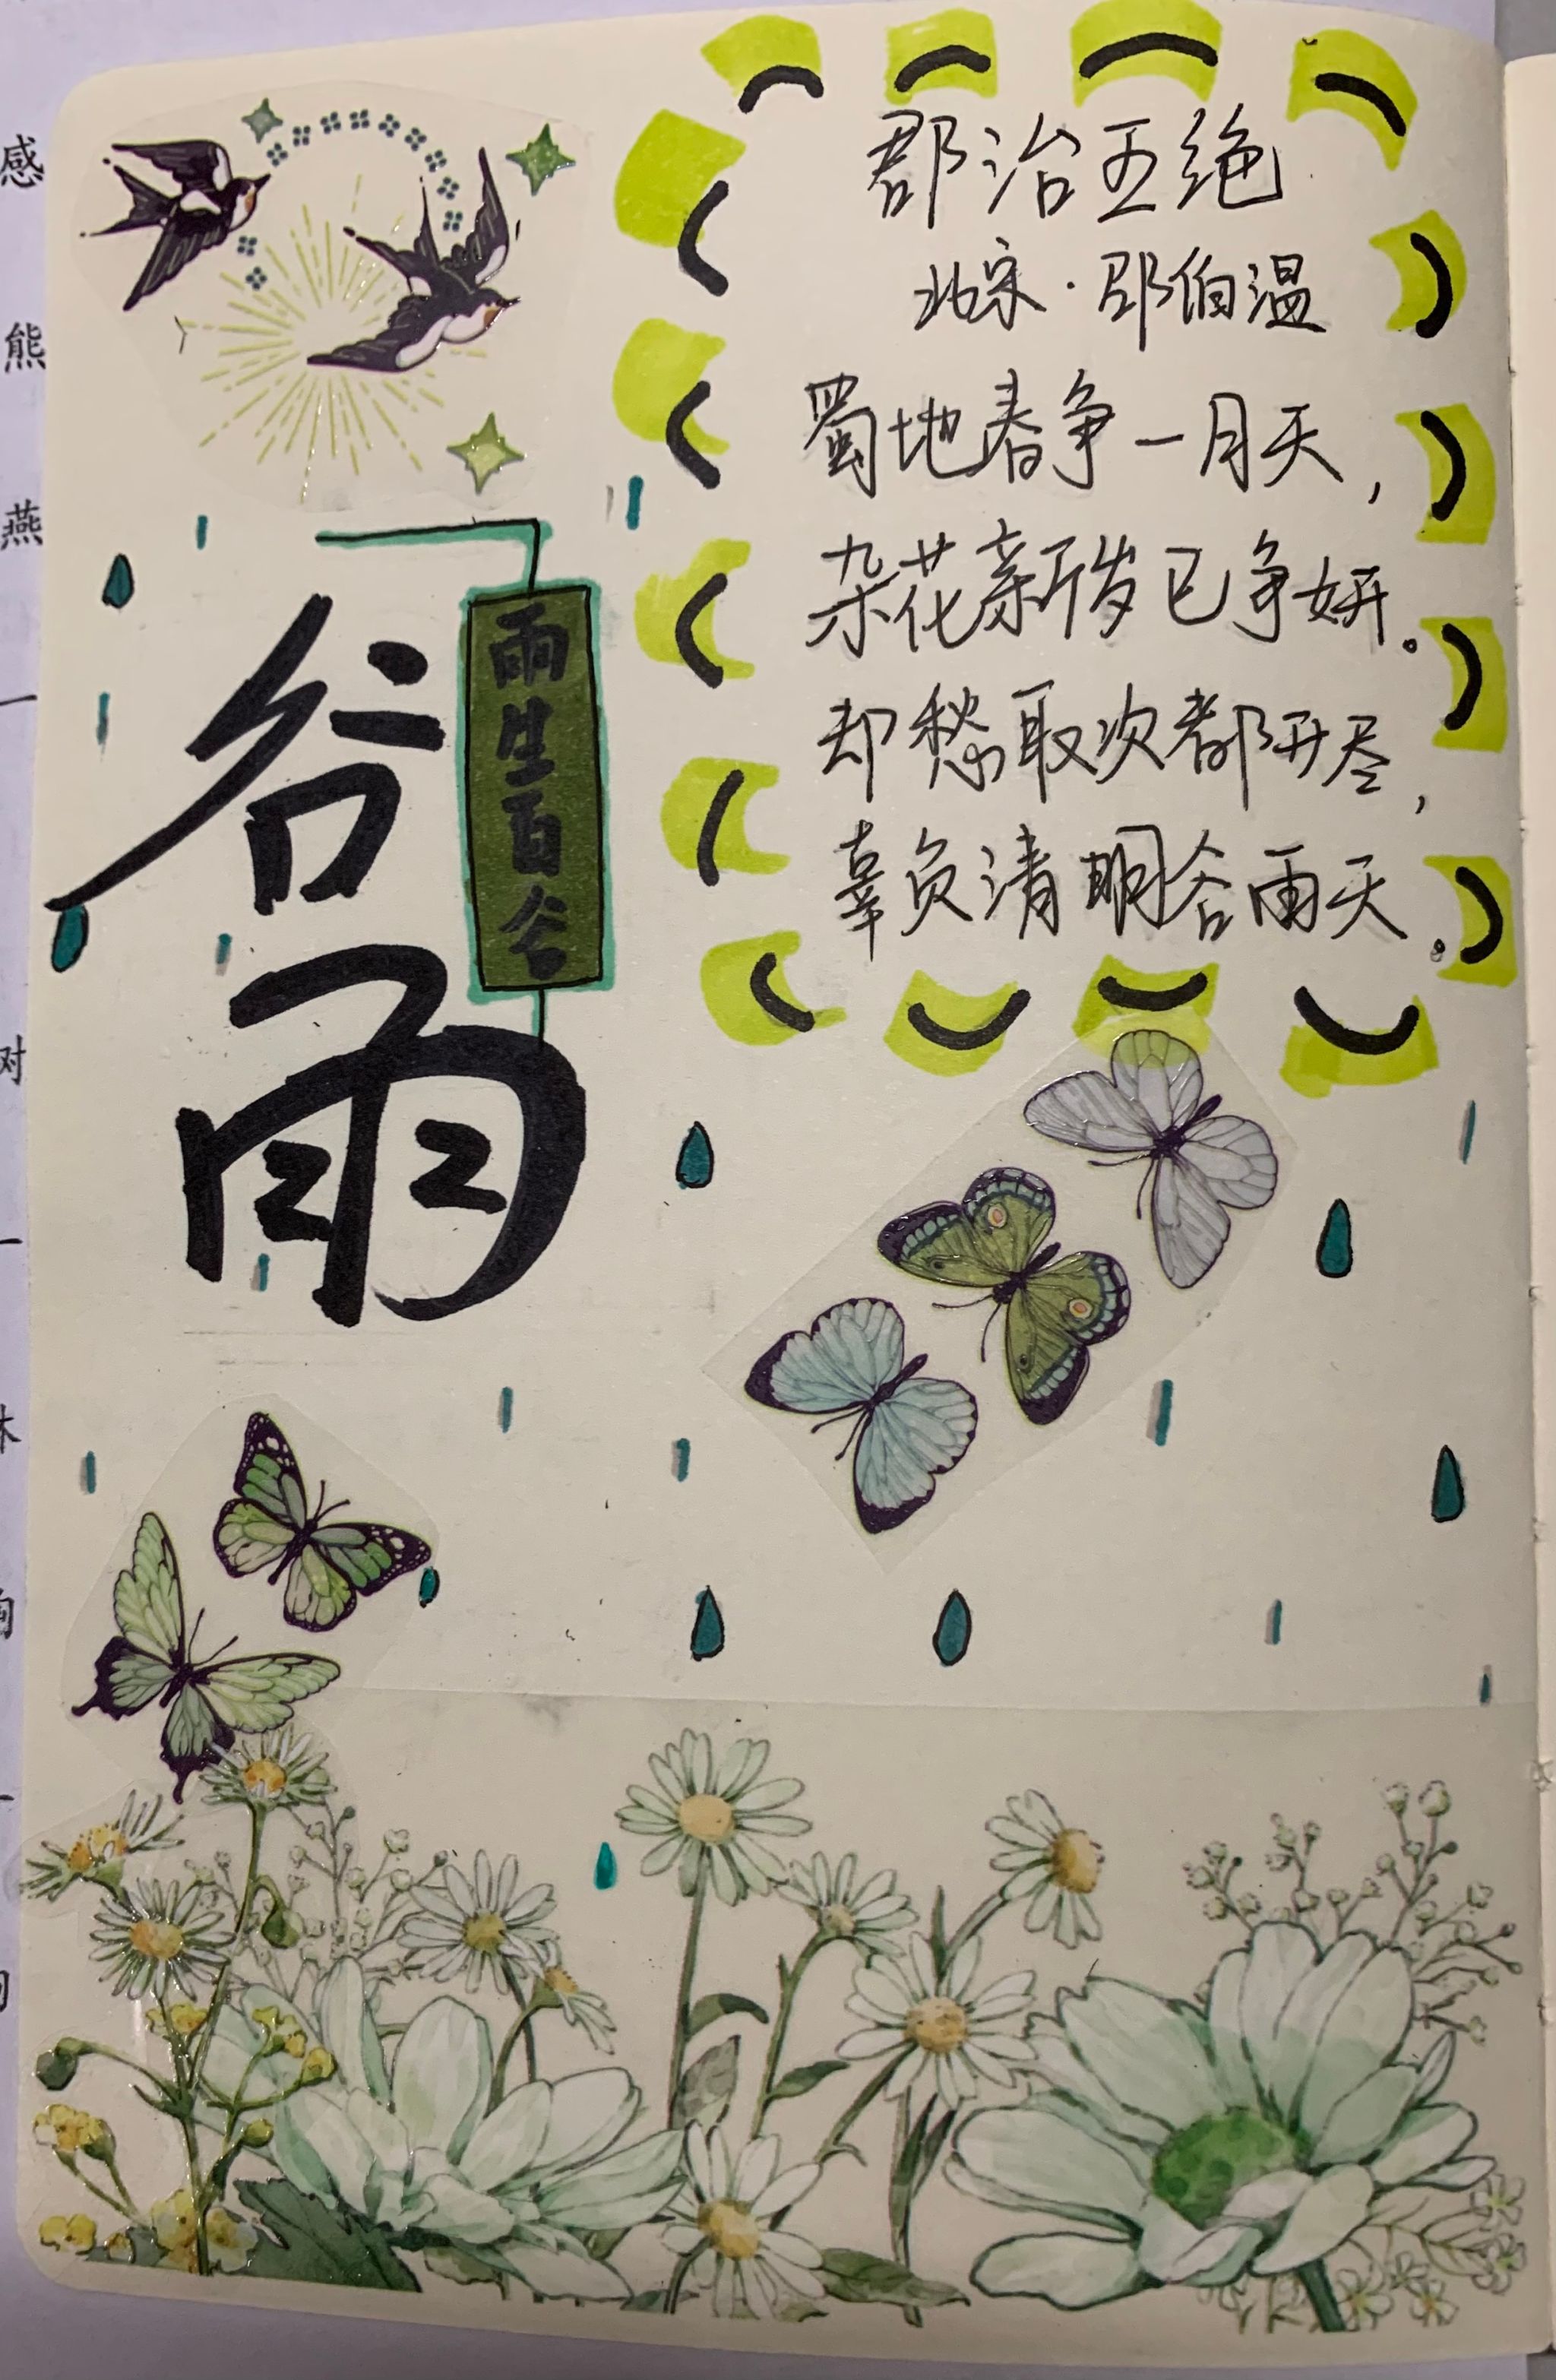 郡治五绝
北宋·邵伯温
蜀地春争一月天，
杂花新岁已争妍。
却愁取次都开尽，
辜负清明谷雨天。
谷雨
雨生百谷
感
熊
燕
一
对
一
林
一